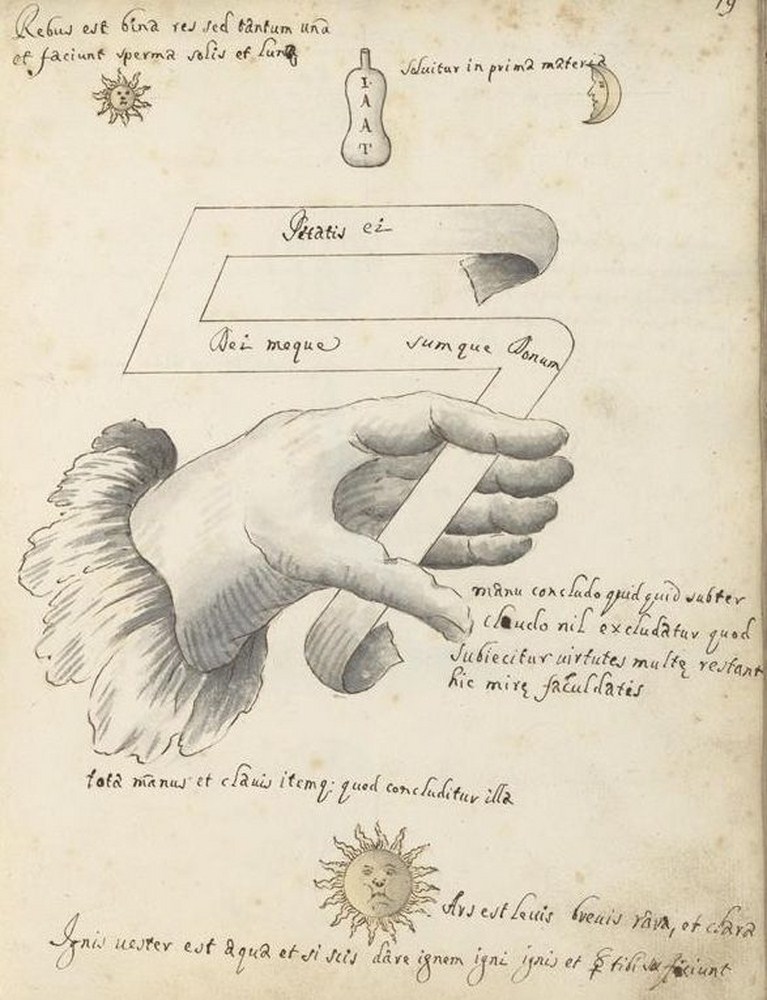 19
Rebus est bina res sed tantum una
et faciunt sperma solis et lunę
soluitur in prima materia
I
A
A
T
Pietatis ei
Dei meque sumque Donum
manu concludo quidquid subter
claudo nil excludatur quod
subiecitur uirtutes multę restant
hic mirę facultatis
tota manus et clauis itemq: quod concluditur illa
Ars est leuis breuis rara, et clara
Ignis uester est aqua et si scis dare ignem igni ignis et ☿ tibi sufficiunt